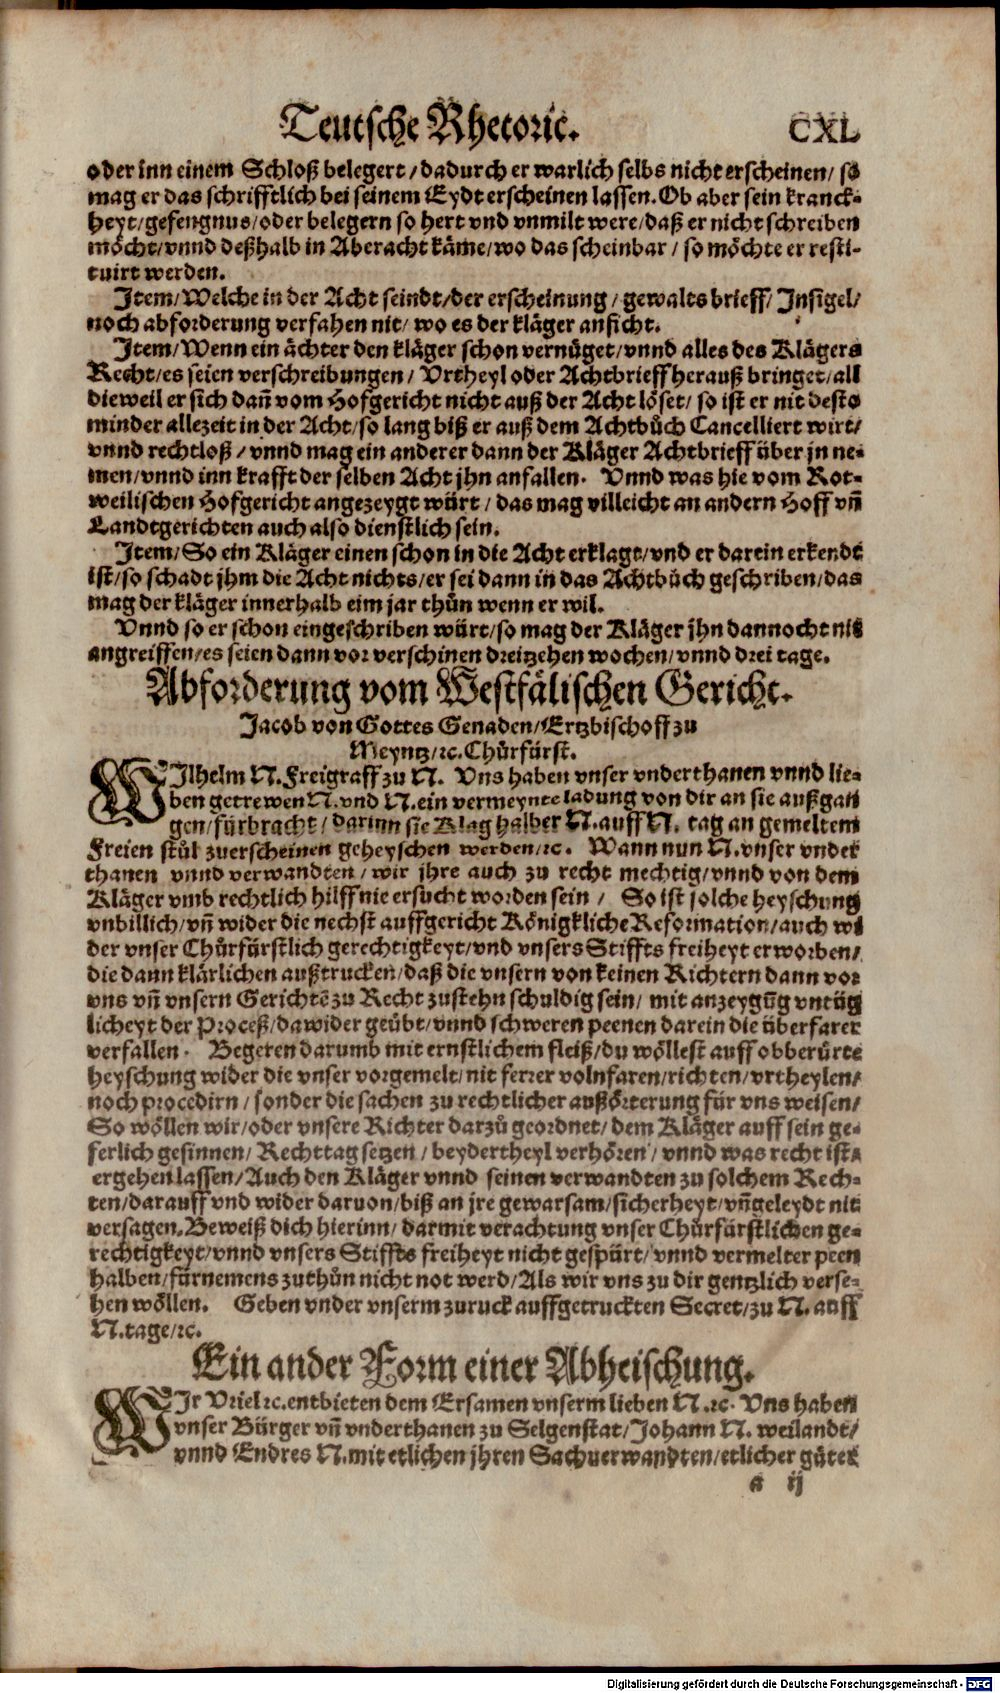 Teutsche Rhetoric. CXL
oder inn einem Schloß belegert / dadurch er warlich selbs nicht erscheinen / so
mag er das schrifftlich bei seinem Eydt erscheinen lassen. Ob aber sein kranck-
heyt / gefengnus / oder belegern so hert vnd vnmilt were / daß er nicht schreiben
möcht / vnnd deßhalb in Aberacht käme / wo das scheinbar / so möchte er resti-
tuirt werden.
Item / Welche in der Acht seindt / der erscheinung / gewalts brieff / Insigel /
noch abforderung verfahen nit / wo es der kläger anficht.
Item / Wenn ein ächter den kläger schon vernüget / vnnd alles des Klägers
Recht / es seien verschreibungen / Vrtheyl oder Achtbrieff herauß bringet / all
dieweil er sich dañ vom Hofgericht nicht auß der Acht löset / so ist er nit desto
minder allezeit in der Acht / so lang biß er auß dem Achtbůch Cancelliert wirt /
vnnd rechtloß / vnnd mag ein anderer dann der Kläger Achtbrieff über jn ne-
men / vnnd inn krafft der selben Acht jhn anfallen. Vnnd was hie vom Rot-
weilischen Hofgericht angezeygt würt / das mag villeicht an andern Hoff vñ
Landtgerichten auch also dienstlich sein.
Item / So ein Kläger einen schon in die Acht erklagt / vnd er darein erkendt
ist / so schadt jhm die Acht nichts / er sei dann in das Achtbůch geschriben / das
mag der kläger innerhalb eim jar thůn wenn er wil.
Vnnd so er schon eingeschriben würt / so mag der Kläger jhn dannocht nit
angreiffen / es seien dann vor verschinen dreitzehen wochen / vnnd drei tage.
Abforderung vom Westfälischen Gericht.
Jacob von Gottes Genaden / Ertzbischoff zu
Meyntz / ꝛc. Chůrfürst.
WIlhelm N. Freigraff zu N. Vns haben vnser vnderthanen vnnd lie-
ben getrewen N. vnd N. ein vermeynte ladung von dir an sie außgan
gen / fürbracht / darinn sie Klag halber N. auff N. tag an gemeltem
Freien stůl zuerscheinen geheyschen werden / ꝛc. Wann nun N. vnser vnder
thanen vnnd verwandten / wir jhre auch zu recht mechtig / vnnd von dem
Kläger vmb rechtlich hilff nie ersucht worden sein / So ist solche heyschung
vnbillich / vñ wider die nechst auffgericht Königkliche Reformation / auch wi
der vnser Chůrfürstlich gerechtigkeyt / vnd vnsers Stiffts freiheyt erworben /
die dann klärlichen außtrucken / daß die vnsern von keinen Richtern dann vor
vns vñ vnsern Gerichtē zu Recht zustehn schuldig sein / mit anzeygūg vntüg
licheyt der Proceß / dawider geübt / vnnd schweren peenen darein die überfarer
verfallen. Begeren darumb mit ernstlichem fleiß / du wöllest auff obberürte
heyschung wider die vnser vorgemelt / nit ferrer volnfaren / richten / vrtheylen /
noch procedirn / sonder die sachen zu rechtlicher außörterung für vns weisen /
So wöllen wir / oder vnsere Richter darzů geordnet / dem Kläger auff sein ge-
ferlich gesinnen / Rechttag setzen / beydertheyl verhören / vnnd was recht ist /
ergehen lassen / Auch den Kläger vnnd seinen verwandten zu solchem Rech-
ten / darauff vnd wider daruon / biß an jre gewarsam / sicherheyt / vñ geleydt nit
versagen. Beweiß dich hierinn / darmit verachtung vnser Chůrfürstlichen ge-
rechtigkeyt / vnnd vnsers Stiffts freiheyt nicht gespürt / vnnd vermelter peen
halben / fürnemens zuthůn nicht not werd / Als wir vns zu dir gentzlich verse-
hen wöllen. Geben vnder vnserm zuruck auffgetruckten Secret / zu N. auff
N. tage / ꝛc.
Ein ander Form einer Abheischung.
WIr Vriel ꝛc. entbieten dem Ersamen vnserm lieben N. ꝛc. Vns haben
vnser Bürger vñ vnderthanen zu Selgenstat / Johann N. weilandt /
vnnd Endres N. mit etlichen jhren Sachuerwandten / etlicher güter
a ij
Digitalisierung gefördert durch die Deutsche Forschungsgemeinschaft - DFG